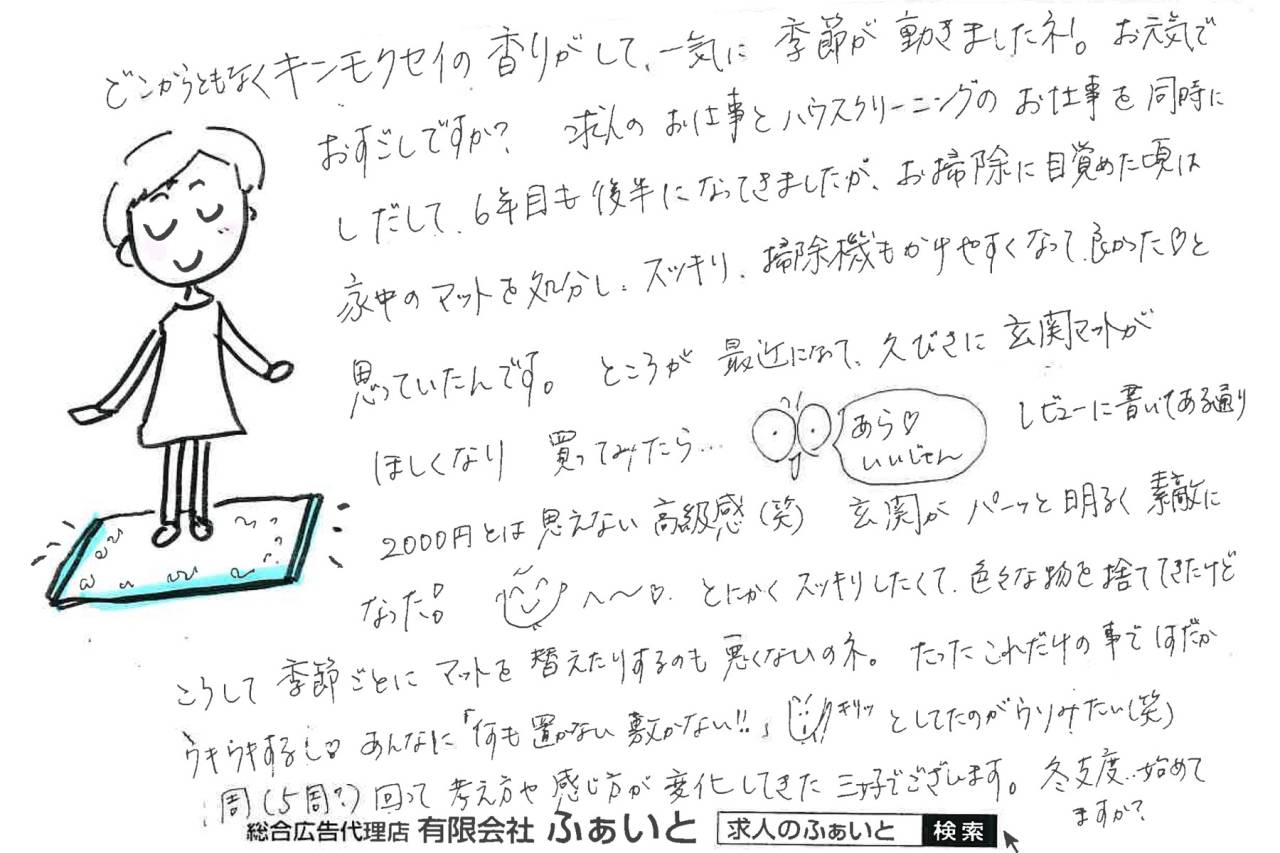 どこからともなくキンモクセイの香りがして、一気に 季節が 動きましたネ!。お元気で
おすごしですか? 求人の お仕事と ハウスクリーニングの お仕事を 同時に
しだして、6年目も 後半に なってきましたが、お掃除に 目覚めた頃は
家中の マットを 処分し、スッキリ、掃除機もかけやすくなって、良かった♡と
思っていたんです。ところが 最近になって、久びさに 玄関マットが
ほしくなり 買ってみたら…
あら♡
いいじゃん
レビューに書いてある通り
2000円とは思えない 高級感(笑) 玄関が パーッと 明るく 素敵に
なった!! へ〜〜♡. とにかく スッキリしたくて、色々な物を 捨ててきたけど
こうして 季節ごとに マットを 替えたりするのも 悪くないのネ。たった これだけの 事で はだか
ウキウキするし♡ あんなに「何も 置かない 敷かない!!」 キリッ としてたのが ウソみたい(笑)
1周(5周?) 回って 考え方や 感じ方が 変化してきた 三好でございます。冬支度…始めて
ますか?
総合広告代理店 有限会社 ふぁいと 求人のふぁいと 検索